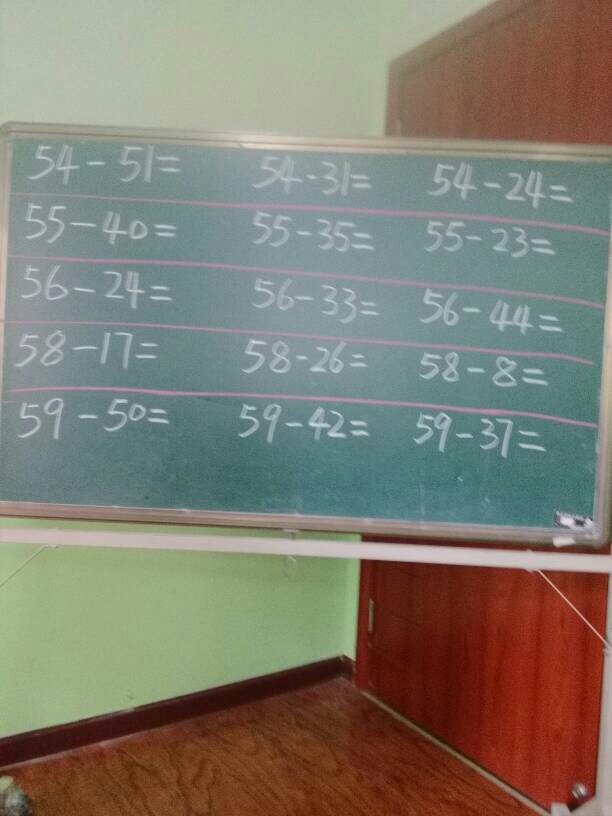 54-51= 54-31= 54-24=
55-40= 55-35= 55-23=
56-24= 56-33= 56-44=
58-17= 58-26= 58-8=
59-50= 59-42= 59-37=